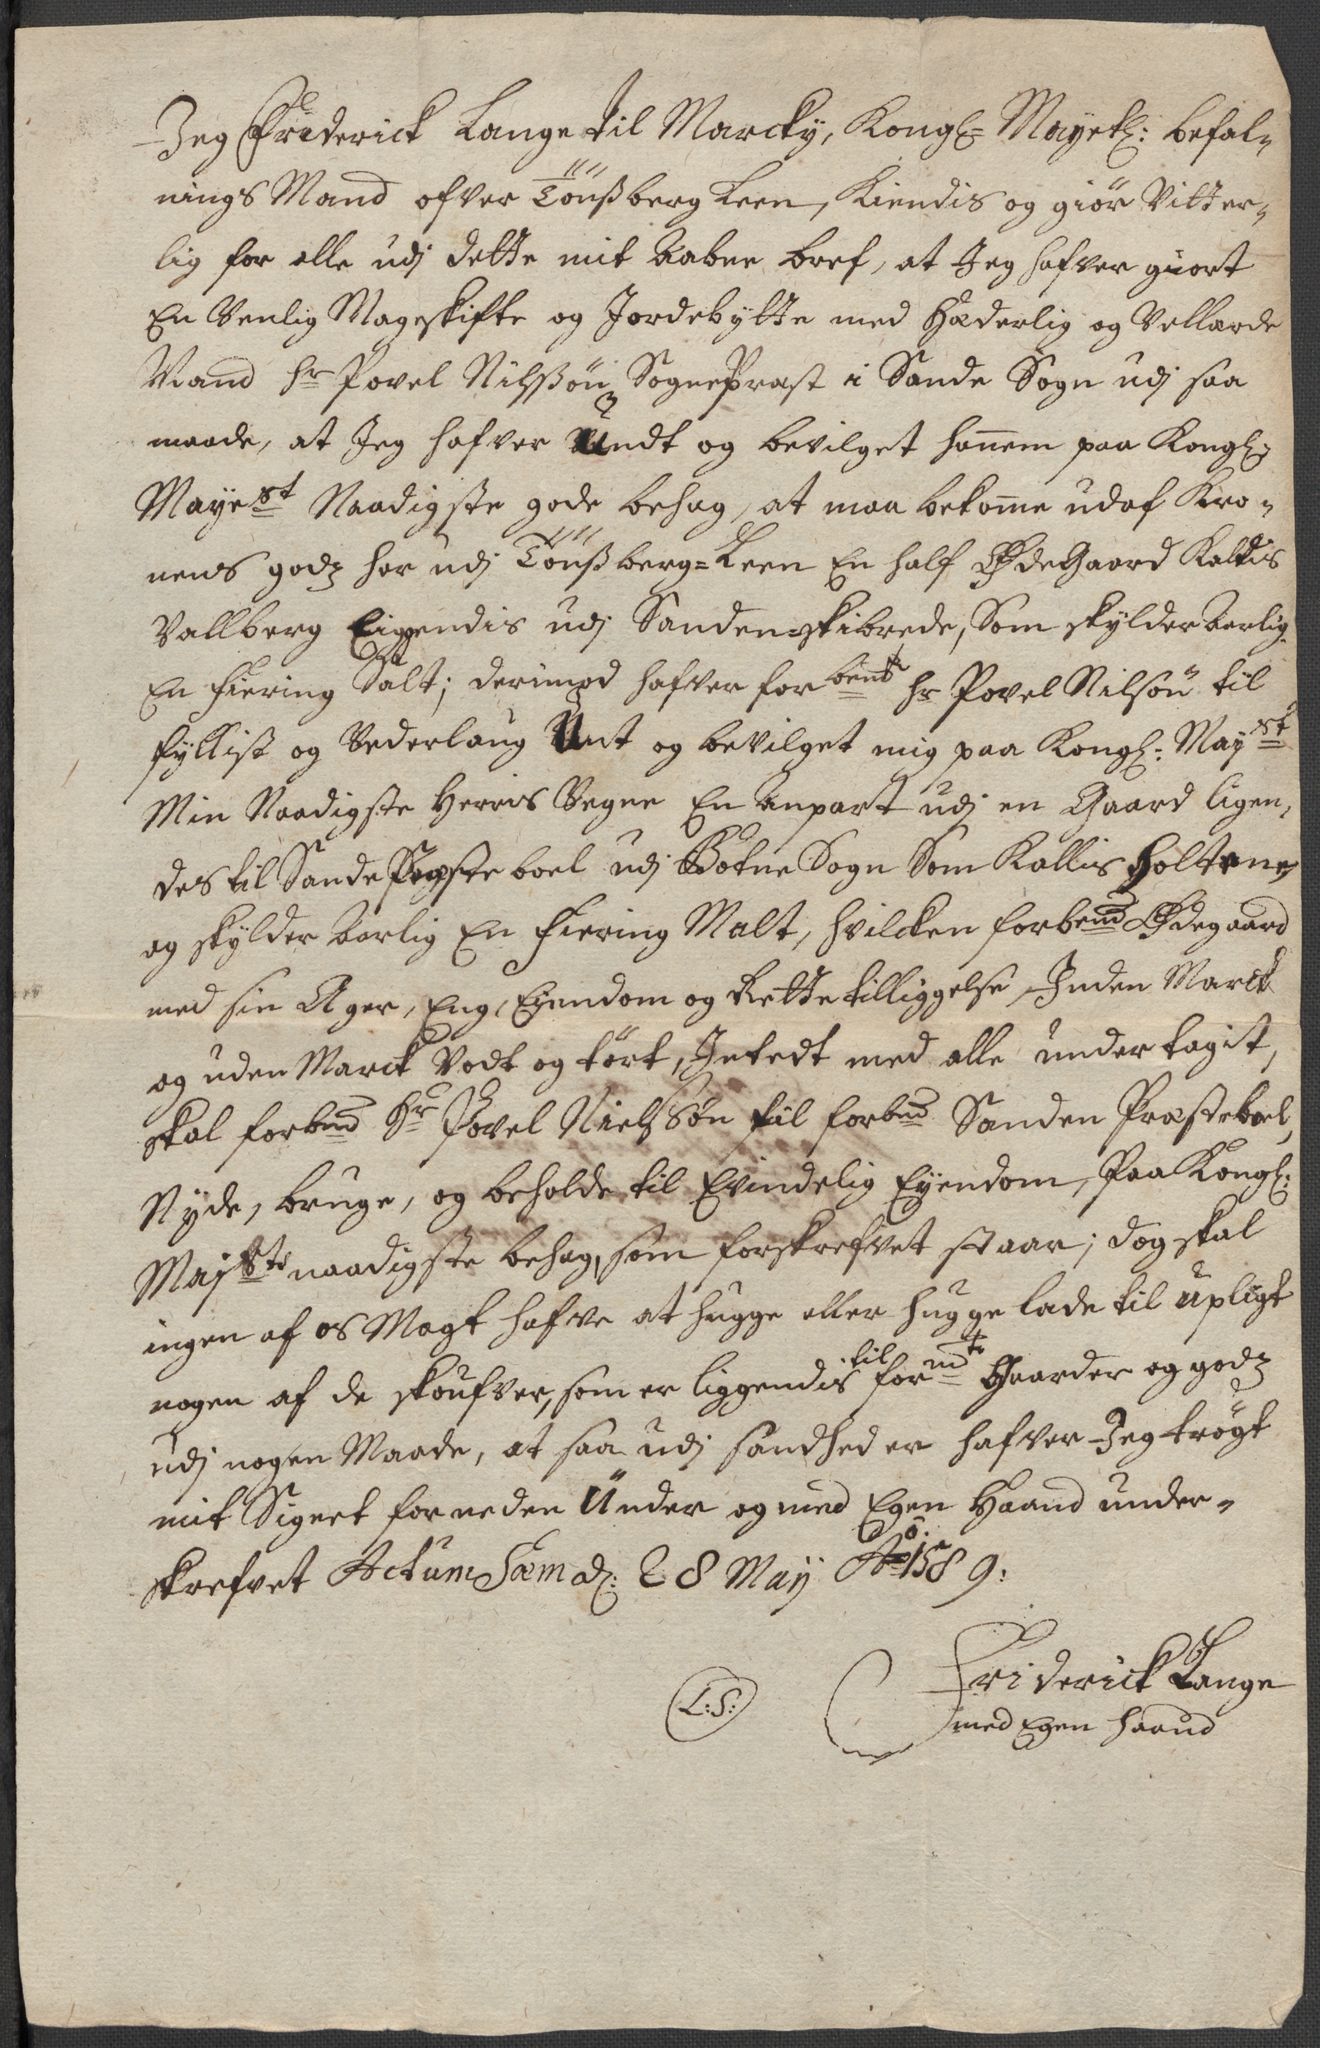 Jeg Friderick Lange til Marcky, Kongl= Mayetz: befal„
nings Mand ofver Tönßberg Leen, Kiendis og giör Vitter„
lig for alle udj dette mit Aabne bref, at Jeg hafver giort
En Venlig Mageskifte og Jordebytte med Hæderlig og Vellærde
Mand hr Povel Nilßsön SognePræst i Sande Sogn udj saa
maade, at Jeg hafver Undt og bevilget hannem paa Kongl:
Mayest Naadigste gode behag, at maa bekomme udaf Kro„
nens godz her udj Tönßberg=Leen En half ØdeGaard Kaldis
Vallberg Liggendis udj Sanden=skibrede, Som skylder Aarlig
En Fiering Salt; derimod hafver forbente hr Povel Nilsön til
fyllist og Vederlaug Unt og bevilget mig paa Kongl: Mayst
Min Naadigste Herris Vegne En Anpart udj en Gaard ligen„
des til Sande Præsteboel udj Botne Sogn Som Kallis Holtene
og skylder Aarlig En Fiering Malt, hvilcken forbemd Ødegaard
med sin Ager, Eng, Eyendom og Rette tilliggelse Inden Marck
og uden Marck Vodt og tört, Intedt med alle undertagit,
skal forbmd Hr Povel Nielssøn til forbmd Sanden Præsteboel,
Nyde, bruge, og beholde til Evindelig Eyendom, Paa Kongl:
Majsts naadigste behag, som forskrefvet staar; dog skal
ingen af os Magt hafve at hugge eller hugge lade til upligt
nogen af de skoufver, som er liggendis til formte Gaarder og godz
udj nogen Maade, at saa udj sandhed er hafver Jeg trögt
mit Signet forneden Under og med Egen Haand under„
skrefvet Actum Sæm d: 28 May Ao 1589:
L:S:
Friderick Lange
med Egen haand